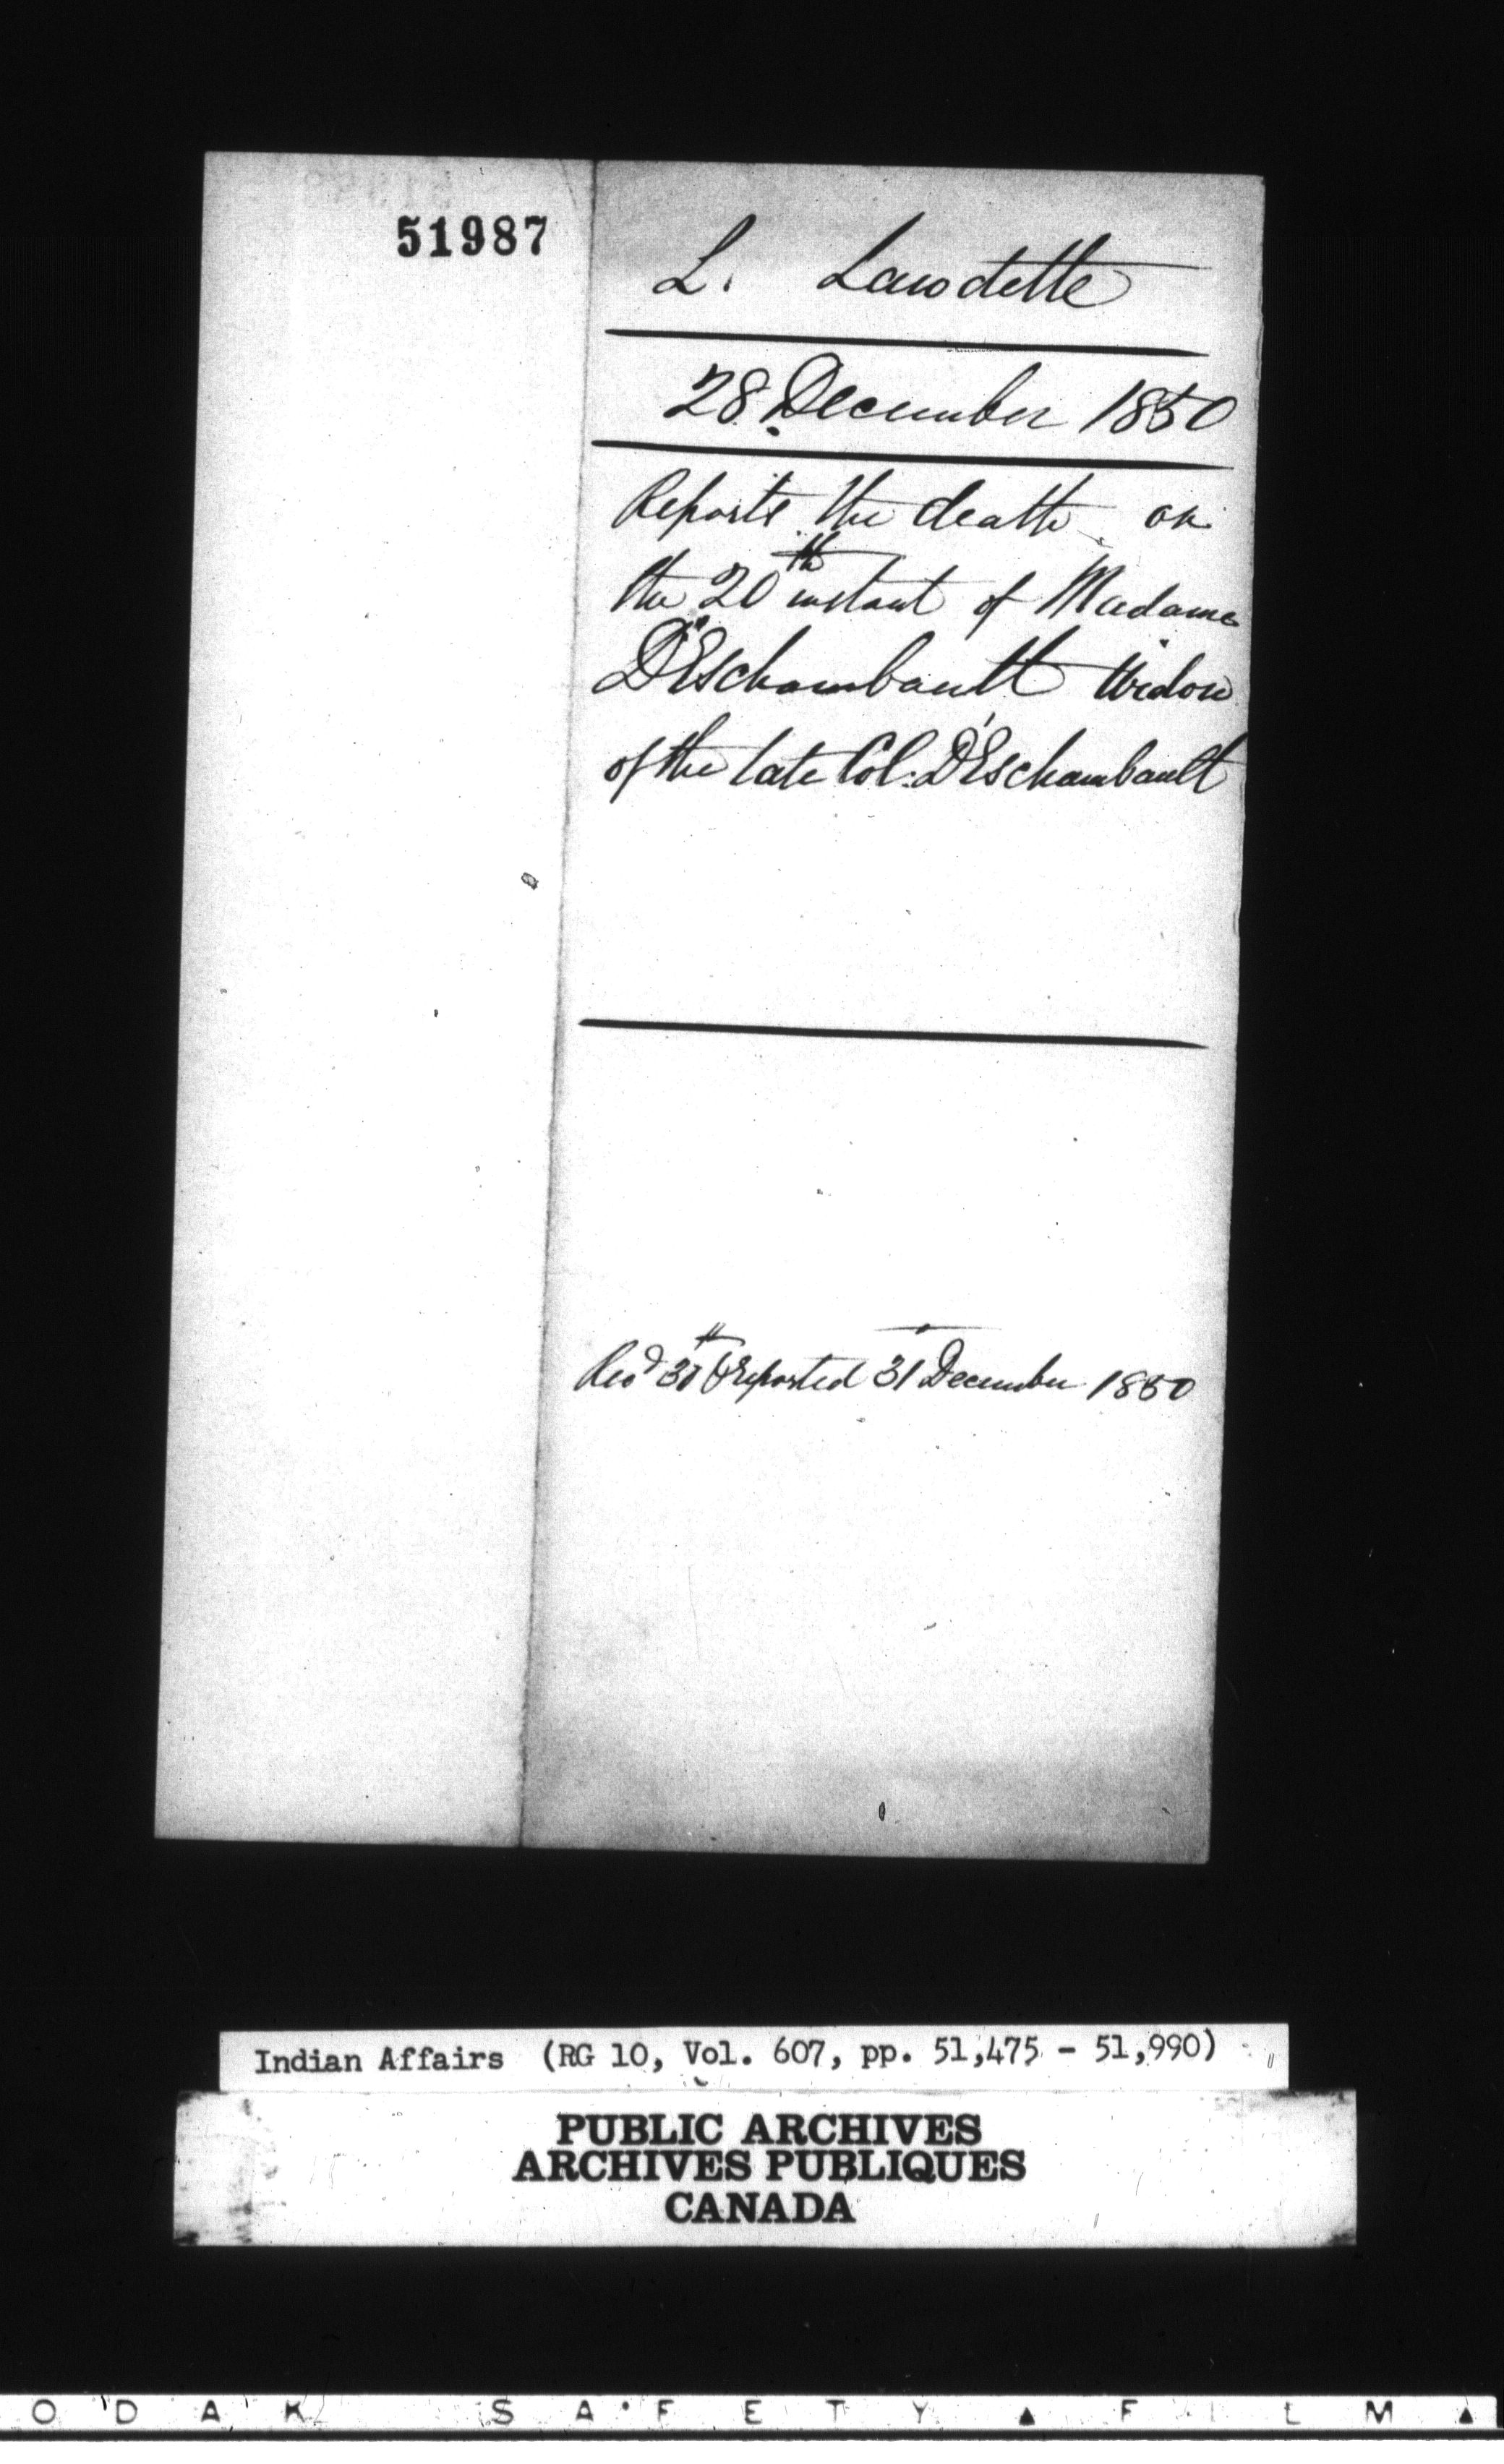 51987
L. Lawdette
28 December 1850
Reports the death on
the 20th instant of Madame
D'Eschambault Widow
of the late Col. D'Eschambault
Recd 30th & reported 31 December 1850
Indian Affairs (RG 10, Vol. 607, pp. 51,475 - 51,990)
PUBLIC ARCHIVES
ARCHIVES PUBLIQUES
CANADA
ODAK SAFETY FILM